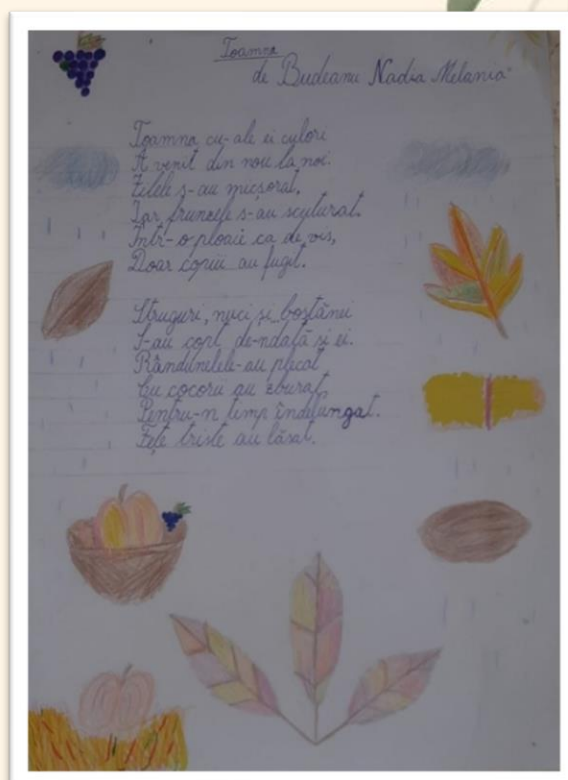 Toamna
de Budeanu Nadia Melania
Toamna cu-ale ei culori
A venit din nou la noi.
Zilele s-au micșorat,
Iar frunzele s-au scuturat.
Într-o ploaie ca de vis,
Doar copiii au fugit.
Struguri, nuci și boștănei
S-au copt de-ndată și ei.
Rândunelele-au plecat
Cu cocorii au zburat
Pentru-n timp îndelungat.
Fețe triste au lăsat.